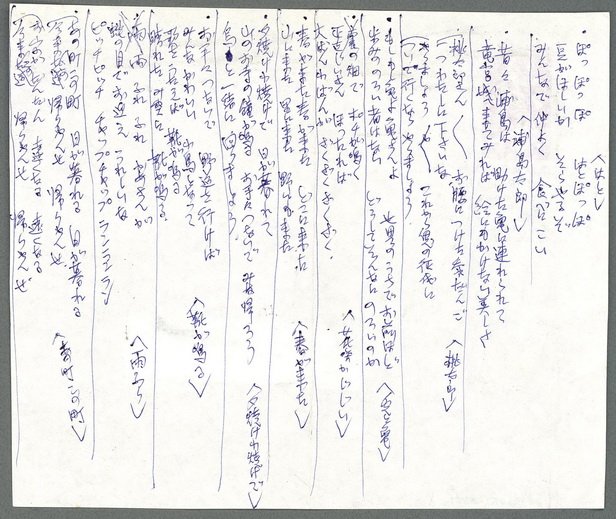 ・ぽっぽっぽ はとぽっぽ
豆がほしいか そらやるぞ
みんなで仲よく 食べにこい
＜はと＞
・昔々浦島は 助けた亀に連れられて
竜宮城へ来てみれば 絵にもかけない美しさ
＜浦島太郎＞
・桃太郎さん〱 お腰につけたきびだんご
一つわたしに下さいな
やりましょう〱 これから鬼の征伐に
ついて行くならやりましょう
＜桃太郎＞
・もしもし亀よ亀さんよ 世界のうちでお前ほど
歩みののろい者はない どうしてそんなにのろいのか
＜兎と亀＞
・裏の畑で ポチが鳴く
正直じいさん ほったれば
大ばんこばんが ざくざくざくざく
＜花咲かじじい＞
・春が来た春が来た どこに来た
山に来た 里に来た 野にも来た
＜春が来た＞
・夕焼け小焼けで 日が暮れて
山のお寺の鐘が鳴る お手々つないで みな帰ろう
烏と一緒に 帰りましょう
＜夕焼け小焼けで＞
・お手々つないで 野道を行けば
みんなかわいい 小鳥になって
歌をうたえば 靴が鳴る
晴れたみ空に 靴が鳴る
＜靴が鳴る＞
・雨雨 ふれふれ 母さんが
蛇の目でお迎え うれしいな
ピッチピッチ チャップチャップ ランランラン
＜雨ふり＞
・あの町この町 日が暮れる 日が暮れる
今きたこの道 帰りゃんせ 帰りゃんせ
＜あの町この町＞
・おうちがだんだん 遠くなる 遠くなる
今きたこの道 帰りゃんせ 帰りゃんせ